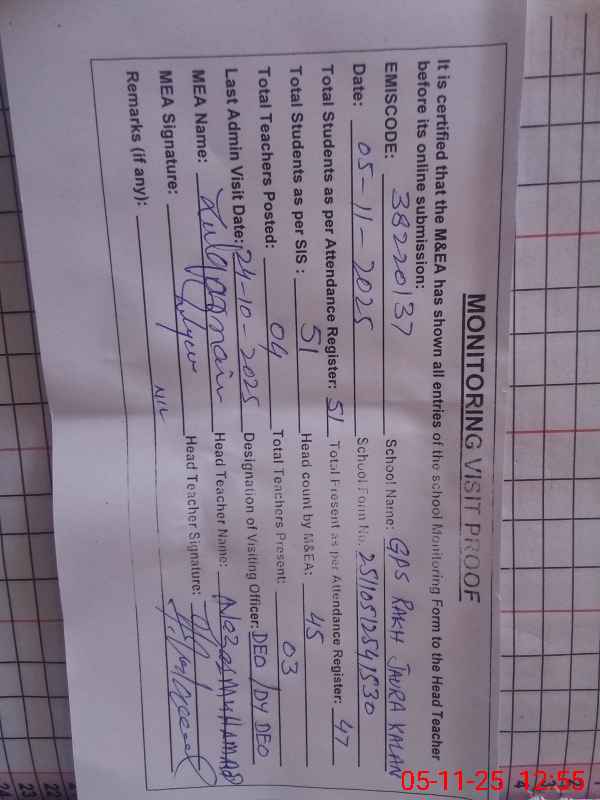 MONITORING VISIT PROOF
It is certified that the M&EA has shown all entries of the school Monitoring Form to the Head Teacher
before its online submission:
EMISCODE: 38220137 School Name: GPS RAKH JAURA KALAN
Date: 05-11-2025 School Form No. 25110512541530
Total Students as per Attendance Register: 51 Total Present as per Attendance Register: 47
Total Students as per SIS : 51 Head count by M&EA: 45
Total Teachers Posted: 04 Total Teachers Present: 03
Last Admin Visit Date: 24-10-2025 Designation of Visiting Officer: DEO /DY DEO
MEA Name: Zulqarnain Head Teacher Name:
MEA Signature: Head Teacher Signature:
Remarks (if any): NIL
05-11-25 12:55
21
22
23
24